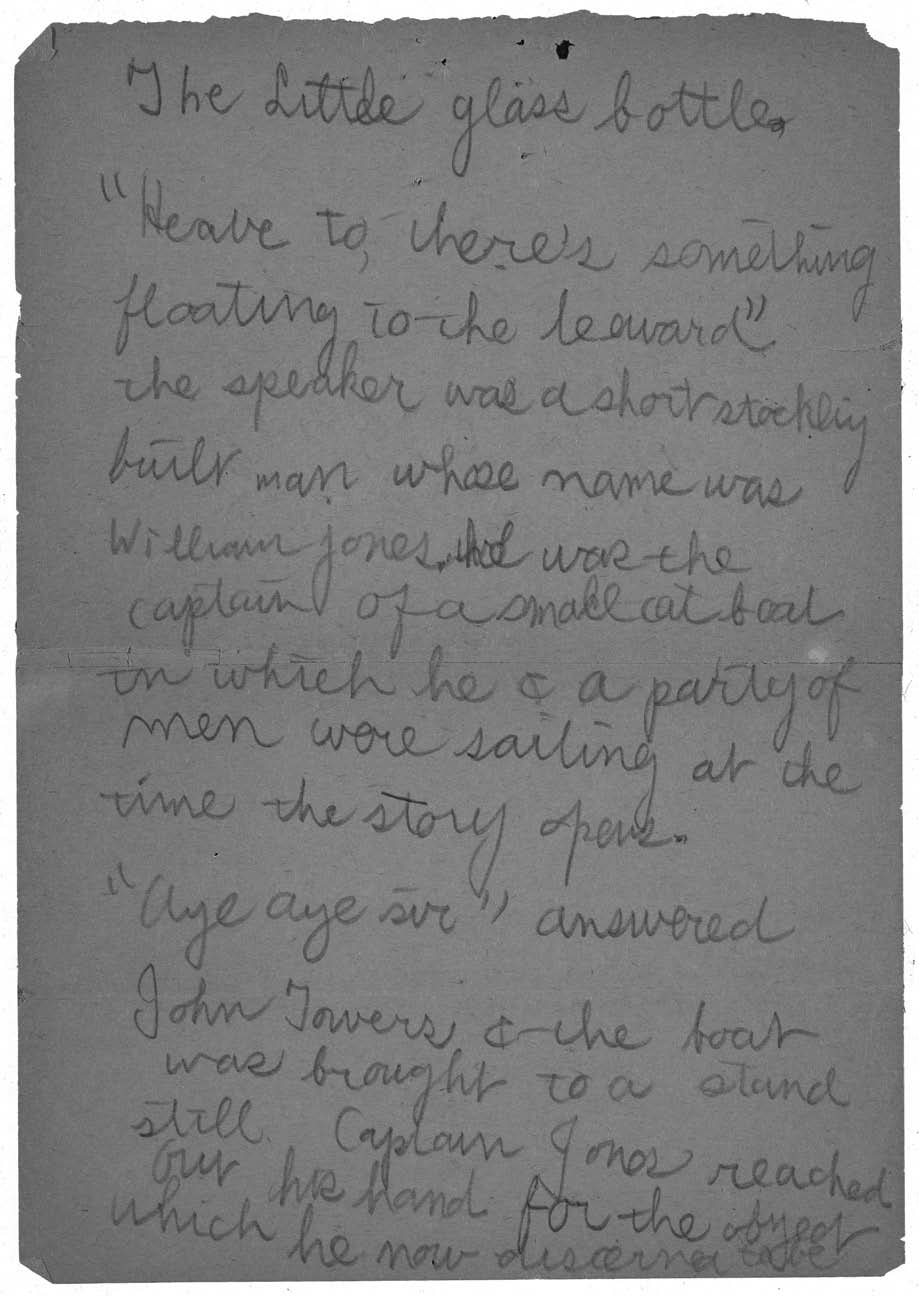 The Little glass bottle.
"Heave to, there's something
floating to the leeward"
the speaker was a short stockily
built man whose name was
William Jones. he was the
captain of a small cat boat
in which he & a party of
men were sailing at the
time the story opens.
"Aye aye sir" answered
John Towers & the boat
was brought to a stand
still. Captain Jones reached
out his hand for the object
which he now discerned to be